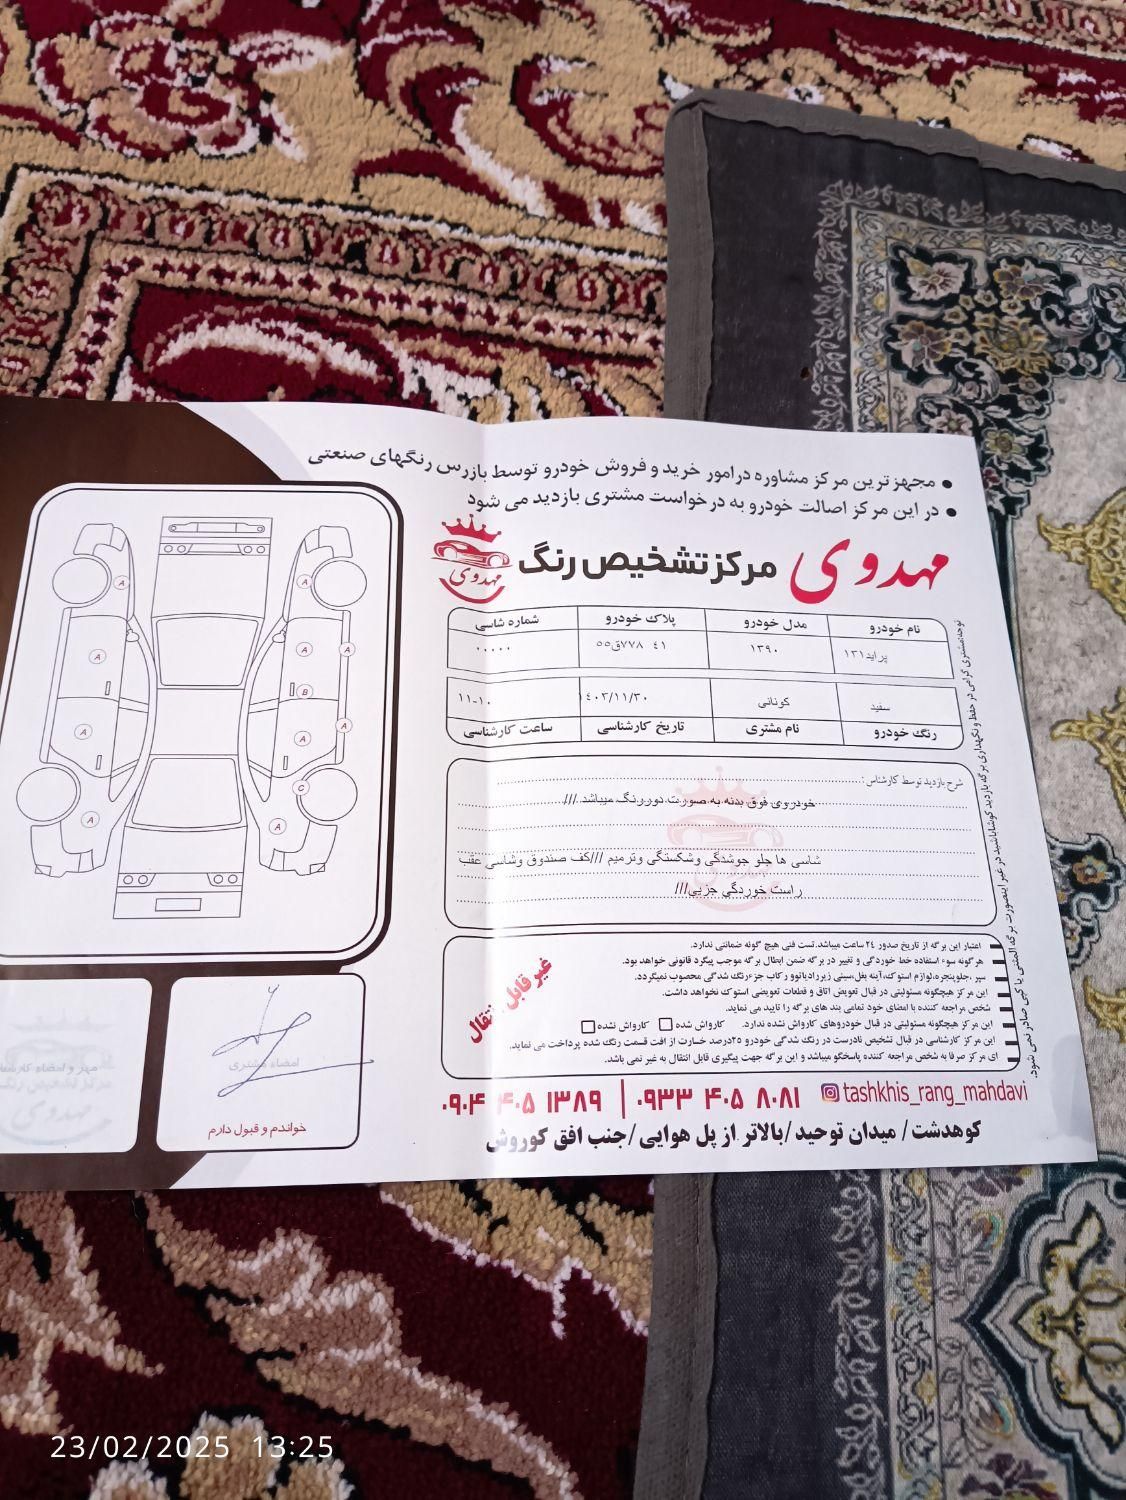 مجهز ترین مرکز مشاوره در امور خرید و فروش خودرو توسط بازرس رنگهای صنعتی
در این مرکز اصالت خودرو به درخواست مشتری بازدید می شود
مهدوی مرکز تشخیص رنگ
مهدوی
نام خودرو مدل خودرو پلاک خودرو شماره شاسی
پراید۱۳۱ ۱۳۹۰ ۴۱ ۷۷۸ق۵۵ ۰۰۰۰۰
سفید کونانی ۱۴۰۳/۱۱/۳۰ ۱۱-۱۰
رنگ خودرو نام مشتری تاریخ کارشناسی ساعت کارشناسی
شرح بازدید توسط کارشناس:
خودروی فوق بدنه به صورت دوررنگ میباشد ///
شاسی ها جلو جوشدگی وشکستگی وترمیم ///کف صندوق وشاسی عقب
راست خوردگی جزیی///
اعتبار این برگه از تاریخ صدور ۲۴ ساعت میباشد.تست فنی هیچ گونه ضمانتی ندارد.
هر گونه سوء استفاده خط خوردگی و تغییر در برگه ضمن ابطال برگه موجب پیگرد قانونی خواهد بود.
سپر ،جلوپنجره،لوازم استوک،آینه بغل،سینی زیررادیاتوو رکاب جزءرنگ شدگی محصوب نمیگردد.
این مرکز هیچگونه مسئولیتی در قبال تعویض اتاق و قطعات تعویضی استوک نخواهد داشت.
شخص مراجعه کننده با امضای خود تمامی بند های برگه را تایید می نماید.
این مرکز هیچگونه مسئولیتی در قبال خودروهای کارواش نشده ندارد. کارواش شده کارواش نشده
این مرکز کارشناسی در قبال تشخیص نادرست در رنگ شدگی خودرو ۲۵درصد خسارت از افت قسمت رنگ شده پرداخت می نماید.
ای مرکز صرفا به شخص مراجعه کننده پاسخگو میباشد و این برگه جهت پیگیری قابل انتقال به غیر نمی باشد.
غیر قابل انتقال
tashkhis_rang_mahdavi
۰۹۳۳ ۴۰۵ ۸۰۸۱ | ۰۹۰۴ ۴۰۵ ۱۳۸۹
کوهدشت/ میدان توحید/بالاتر از پل هوایی/جنب افق کوروش
A
A
A
A
A
A
B
A
A
C
A
A
امضاء مشتری
خواندم و قبول دارم
23/02/2025 13:25